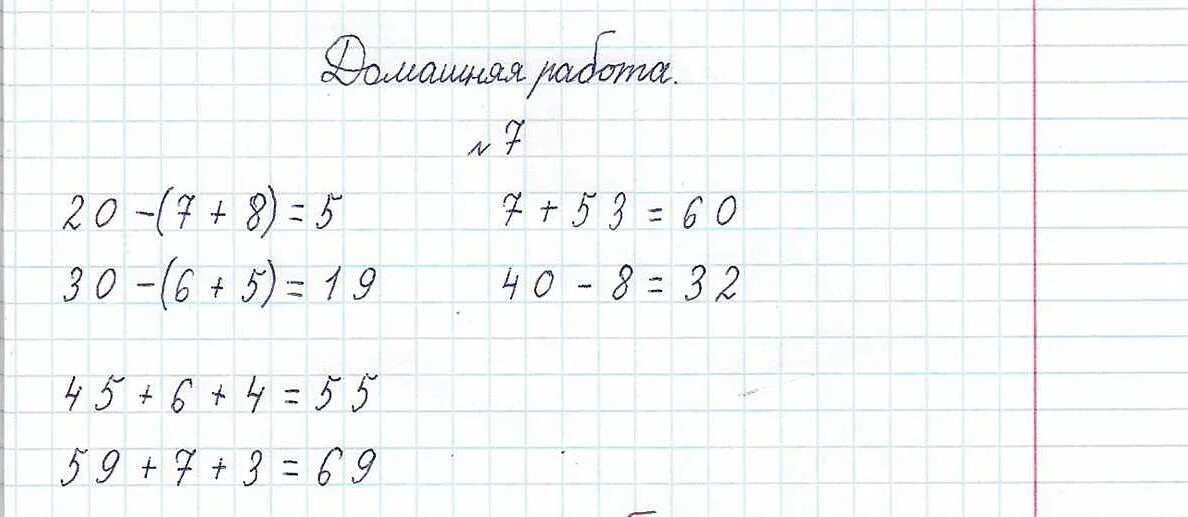 Домашняя работа.
№ 7
20 - (7 + 8) = 5 7 + 53 = 60
30 - (6 + 5) = 19 40 - 8 = 32
45 + 6 + 4 = 55
59 + 7 + 3 = 69